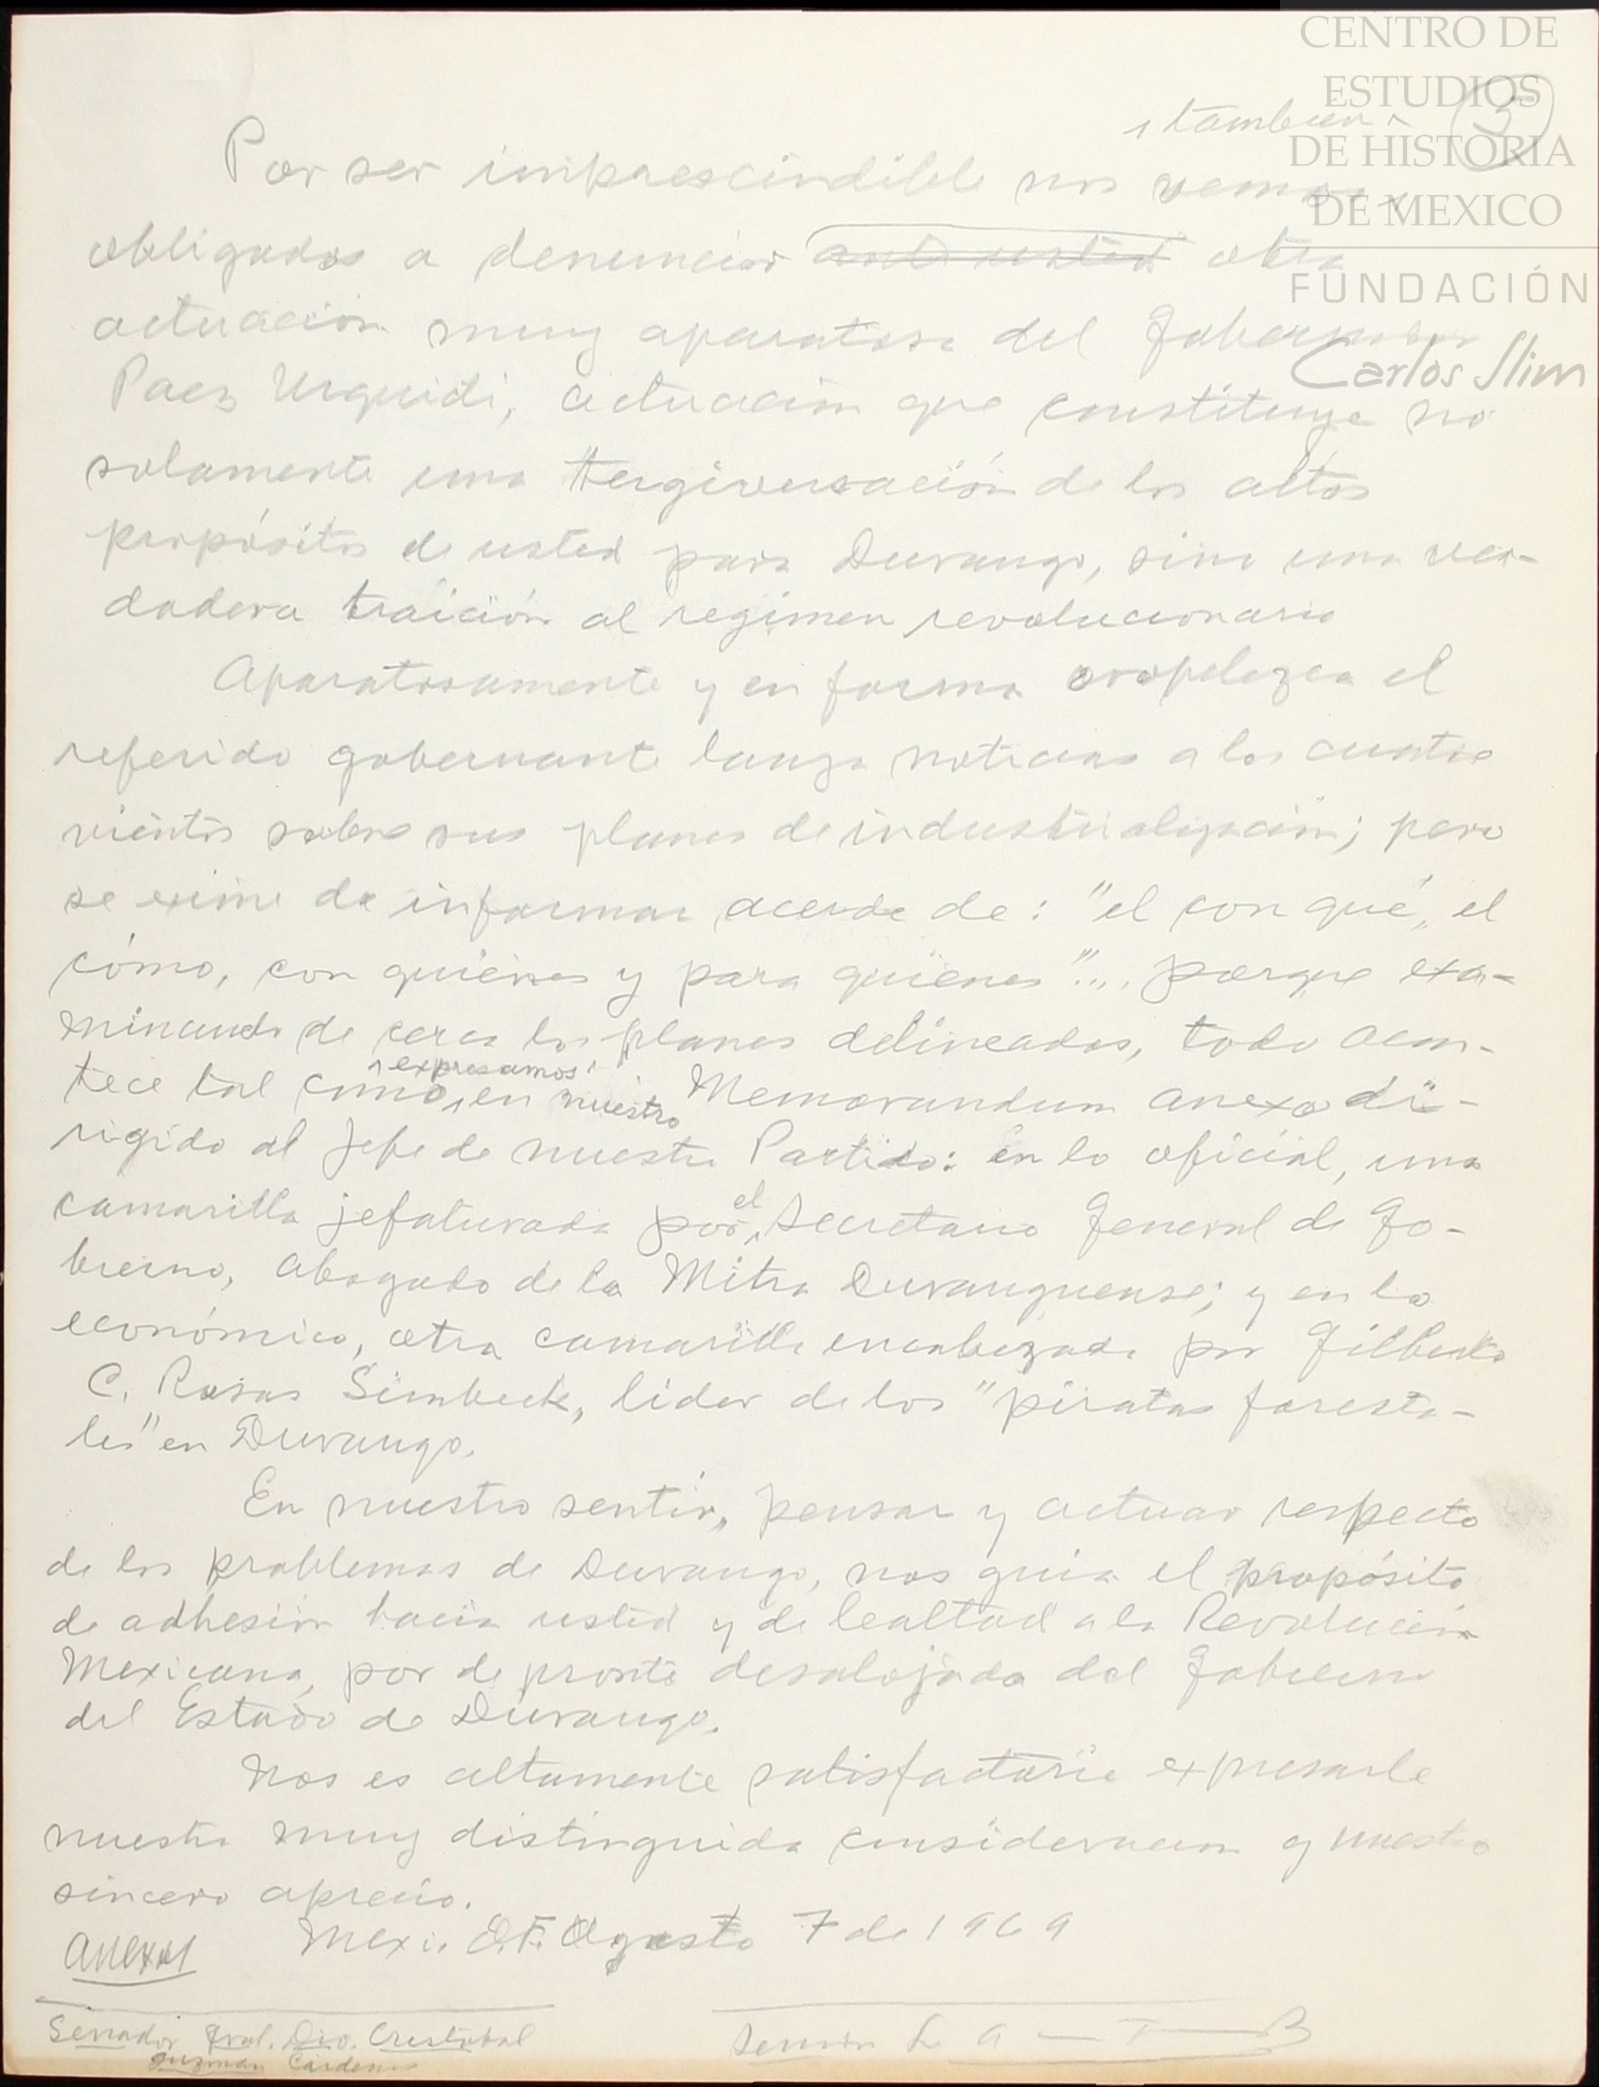 CENTRO DE
ESTUDIOS
DE HISTORIA
DE MEXICO
FUNDACIÓN
Carlos Slim
5
también
Por ser imprescindible nos vemos
obligados a denunciar ante usted otra
actuación muy aparatosa del Gobernador
Paez Urquidi, actuación que constituye no
solamente una tergiversación de los altos
propósitos de usted para Durango, sino una ver-
dadera traición al regimen revolucionario
Aparatosamente y en forma oropelezca el
referido gobernante lanza noticias a los cuatro
vientos sobre sus planes de industrialización; pero
se exime de informar acerca de: "el con qué, el
cómo, con quiénes y para quiénes"... porque exa-
minando de cerca los planes delineados, todo acon-
expresamos
tece tal como en nuestro Memorandum anexo di-
rigido al Jefe de nuestro Partido: en lo oficial, una
el
camarilla jefaturada por Secretario General de Go-
bierno, Abogado de la Mitra Duranguense; y en lo
económico, otra camarilla encabezada por Gilberto
C. Rosas Simbeck, lider de los "piratas foresta-
les" en Durango.
En nuestro sentir, pensar y actuar respecto
de los problemas de Durango, nos guia el propósito
de adhesión hacia usted y de lealtad a la Revolución
Mexicana, por de pronto desalojada del Gobierno
del Estado de Durango.
Nos es altamente satisfactorio expresarle
nuestra muy distinguida consideracion y nuestro
sincero aprecio.
Mexico D.F. Agosto 7 de 1969
Anexos
Senador Gral. Div. Cristobal
Guzman Cárdenas
L A T B